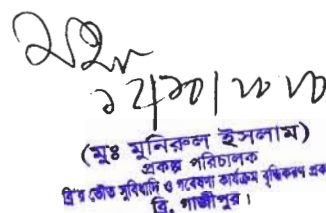 ১২/১০/২০২০
(মুঃ মুনিরুল ইসলাম)
প্রকল্প পরিচালক
ব্রি'র ভৌত সুবিধাদি ও গবেষণা কার্যক্রম বৃদ্ধিকরণ প্রকল্প
ব্রি, গাজীপুর।